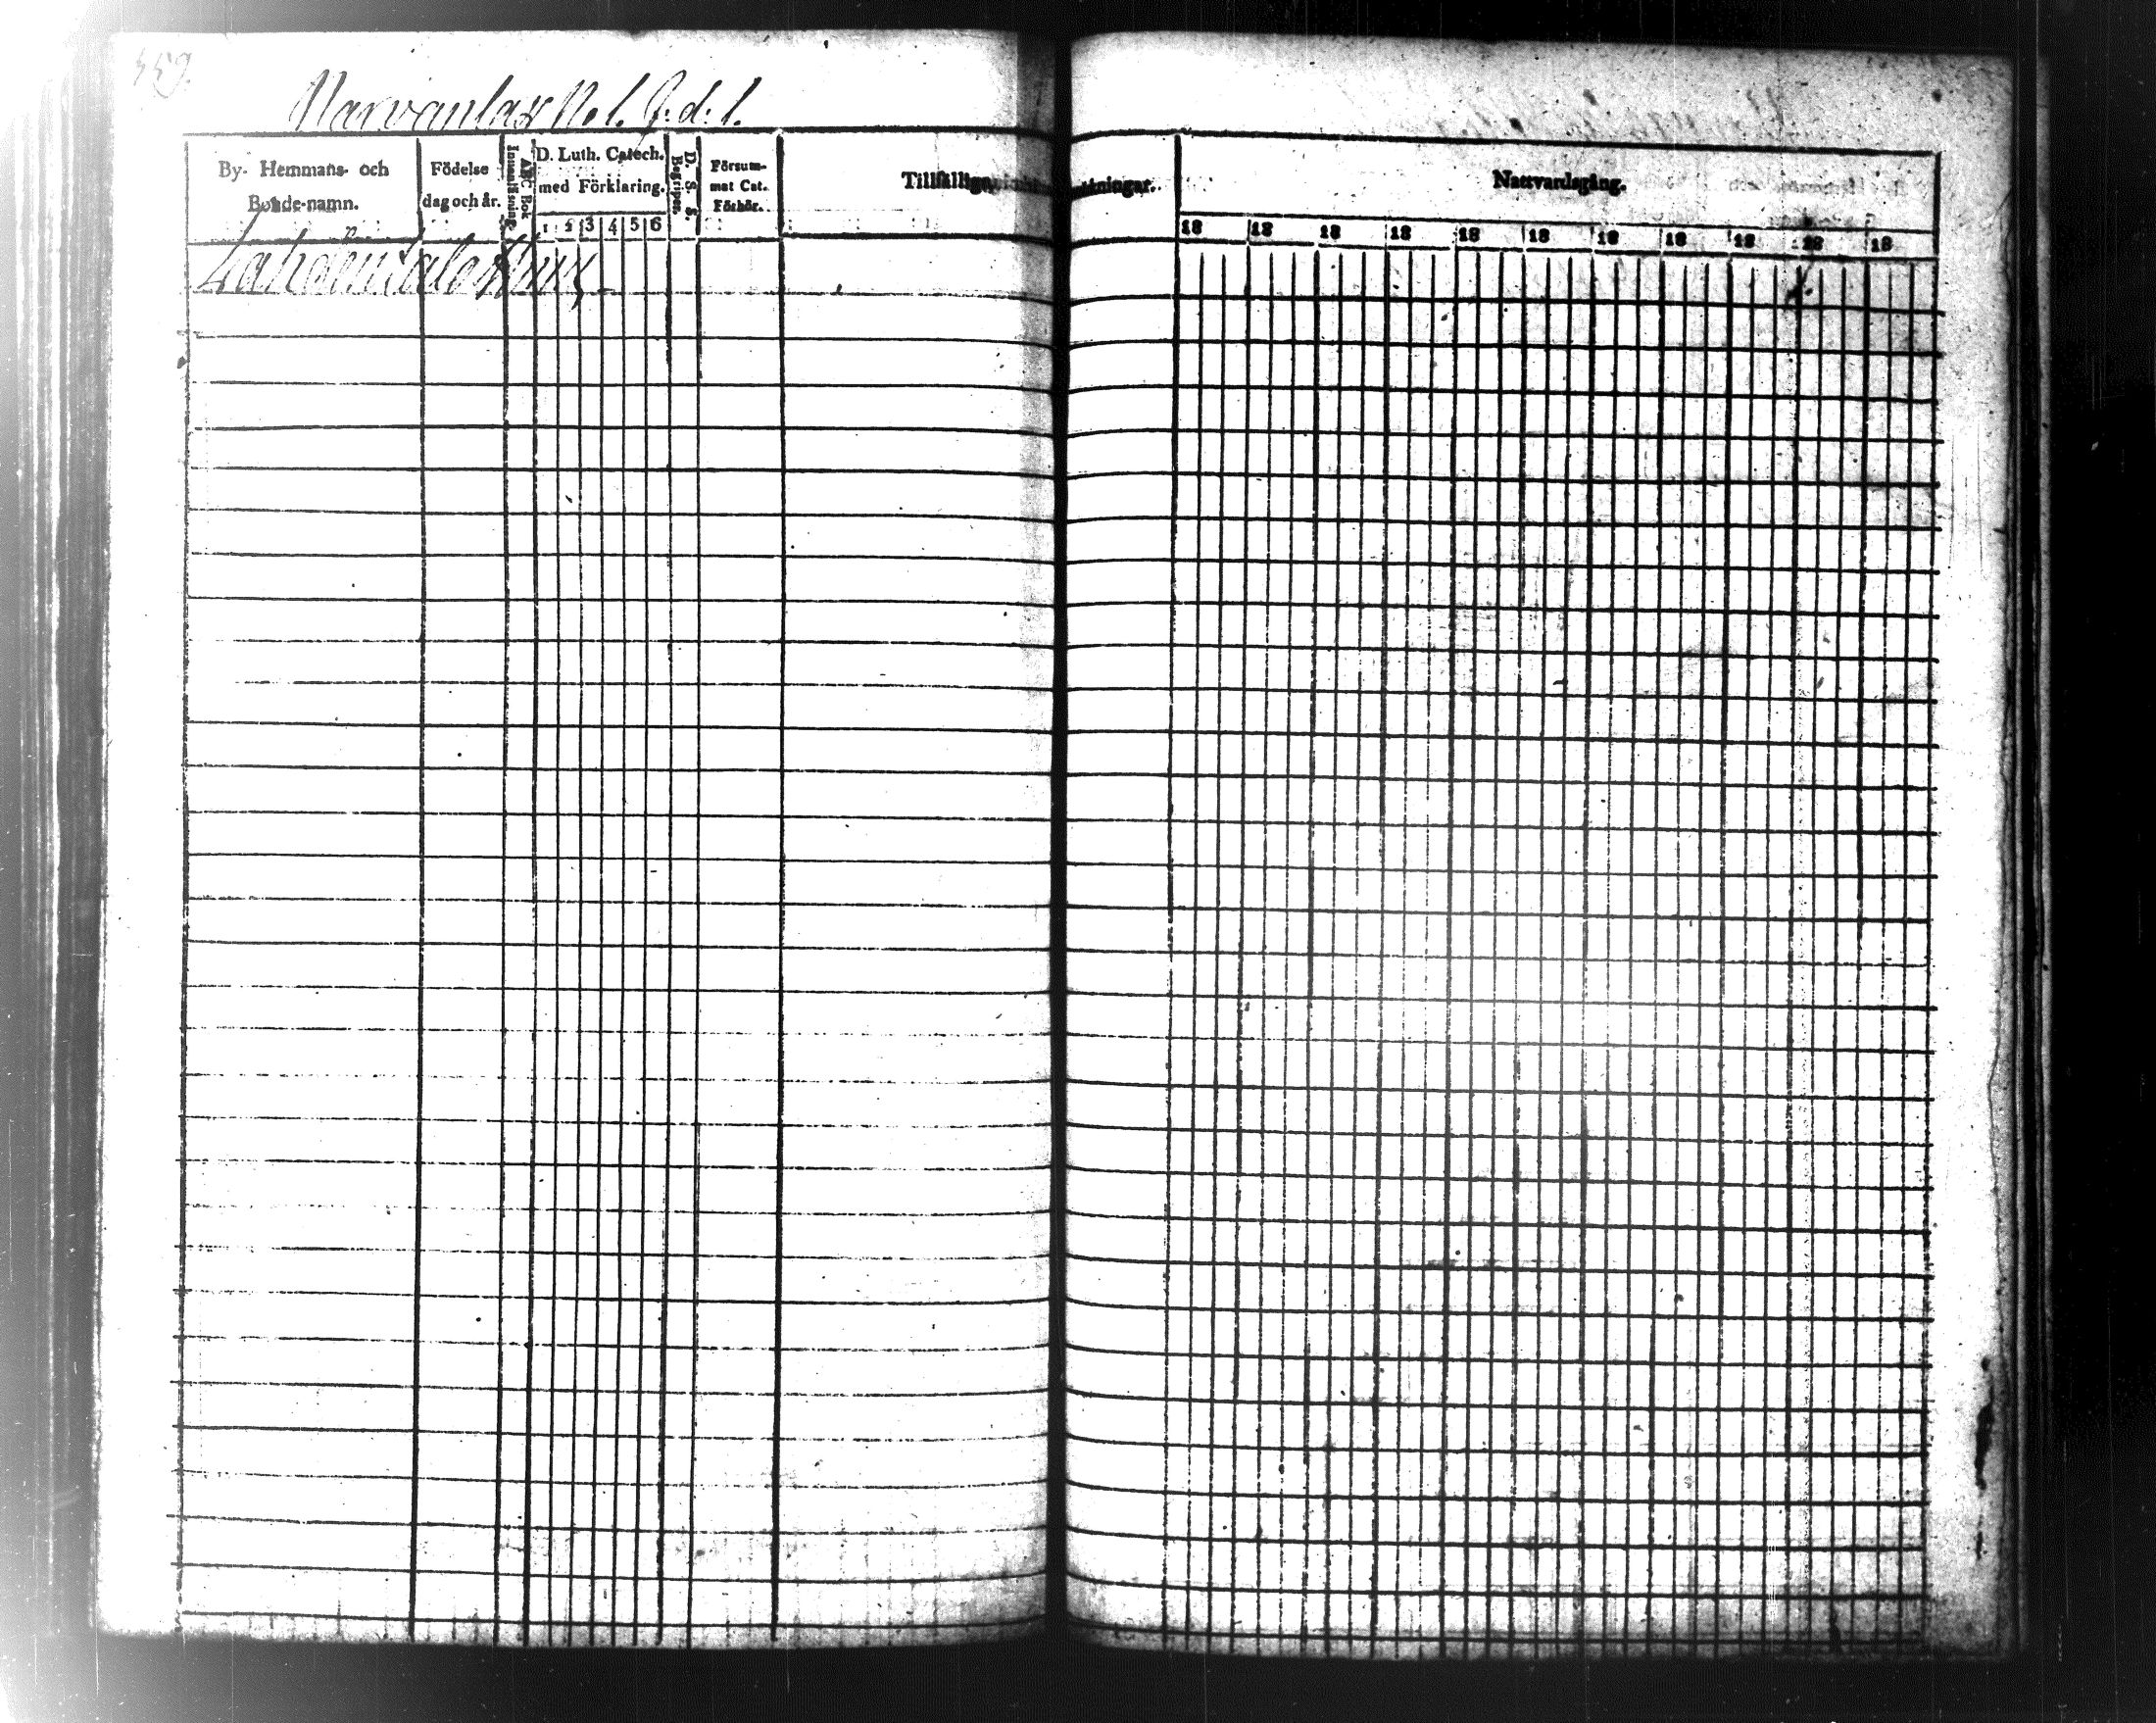 539.
Narvanlax No 1. J. d. 1.
By- Hemmans- och
Bonde-namn.
Födelse
dag och år.
ABC Bok
Innanläsning.
D. Luth. Catech.
med Förklaring.
1 2 3 4 5 6
D. S. S.
Begriper.
Försum-
mat Cat.
Förhör.
Tillfälliga
Nattvardsgång.
18 18 18 18 18 18 18 18 18 18 18